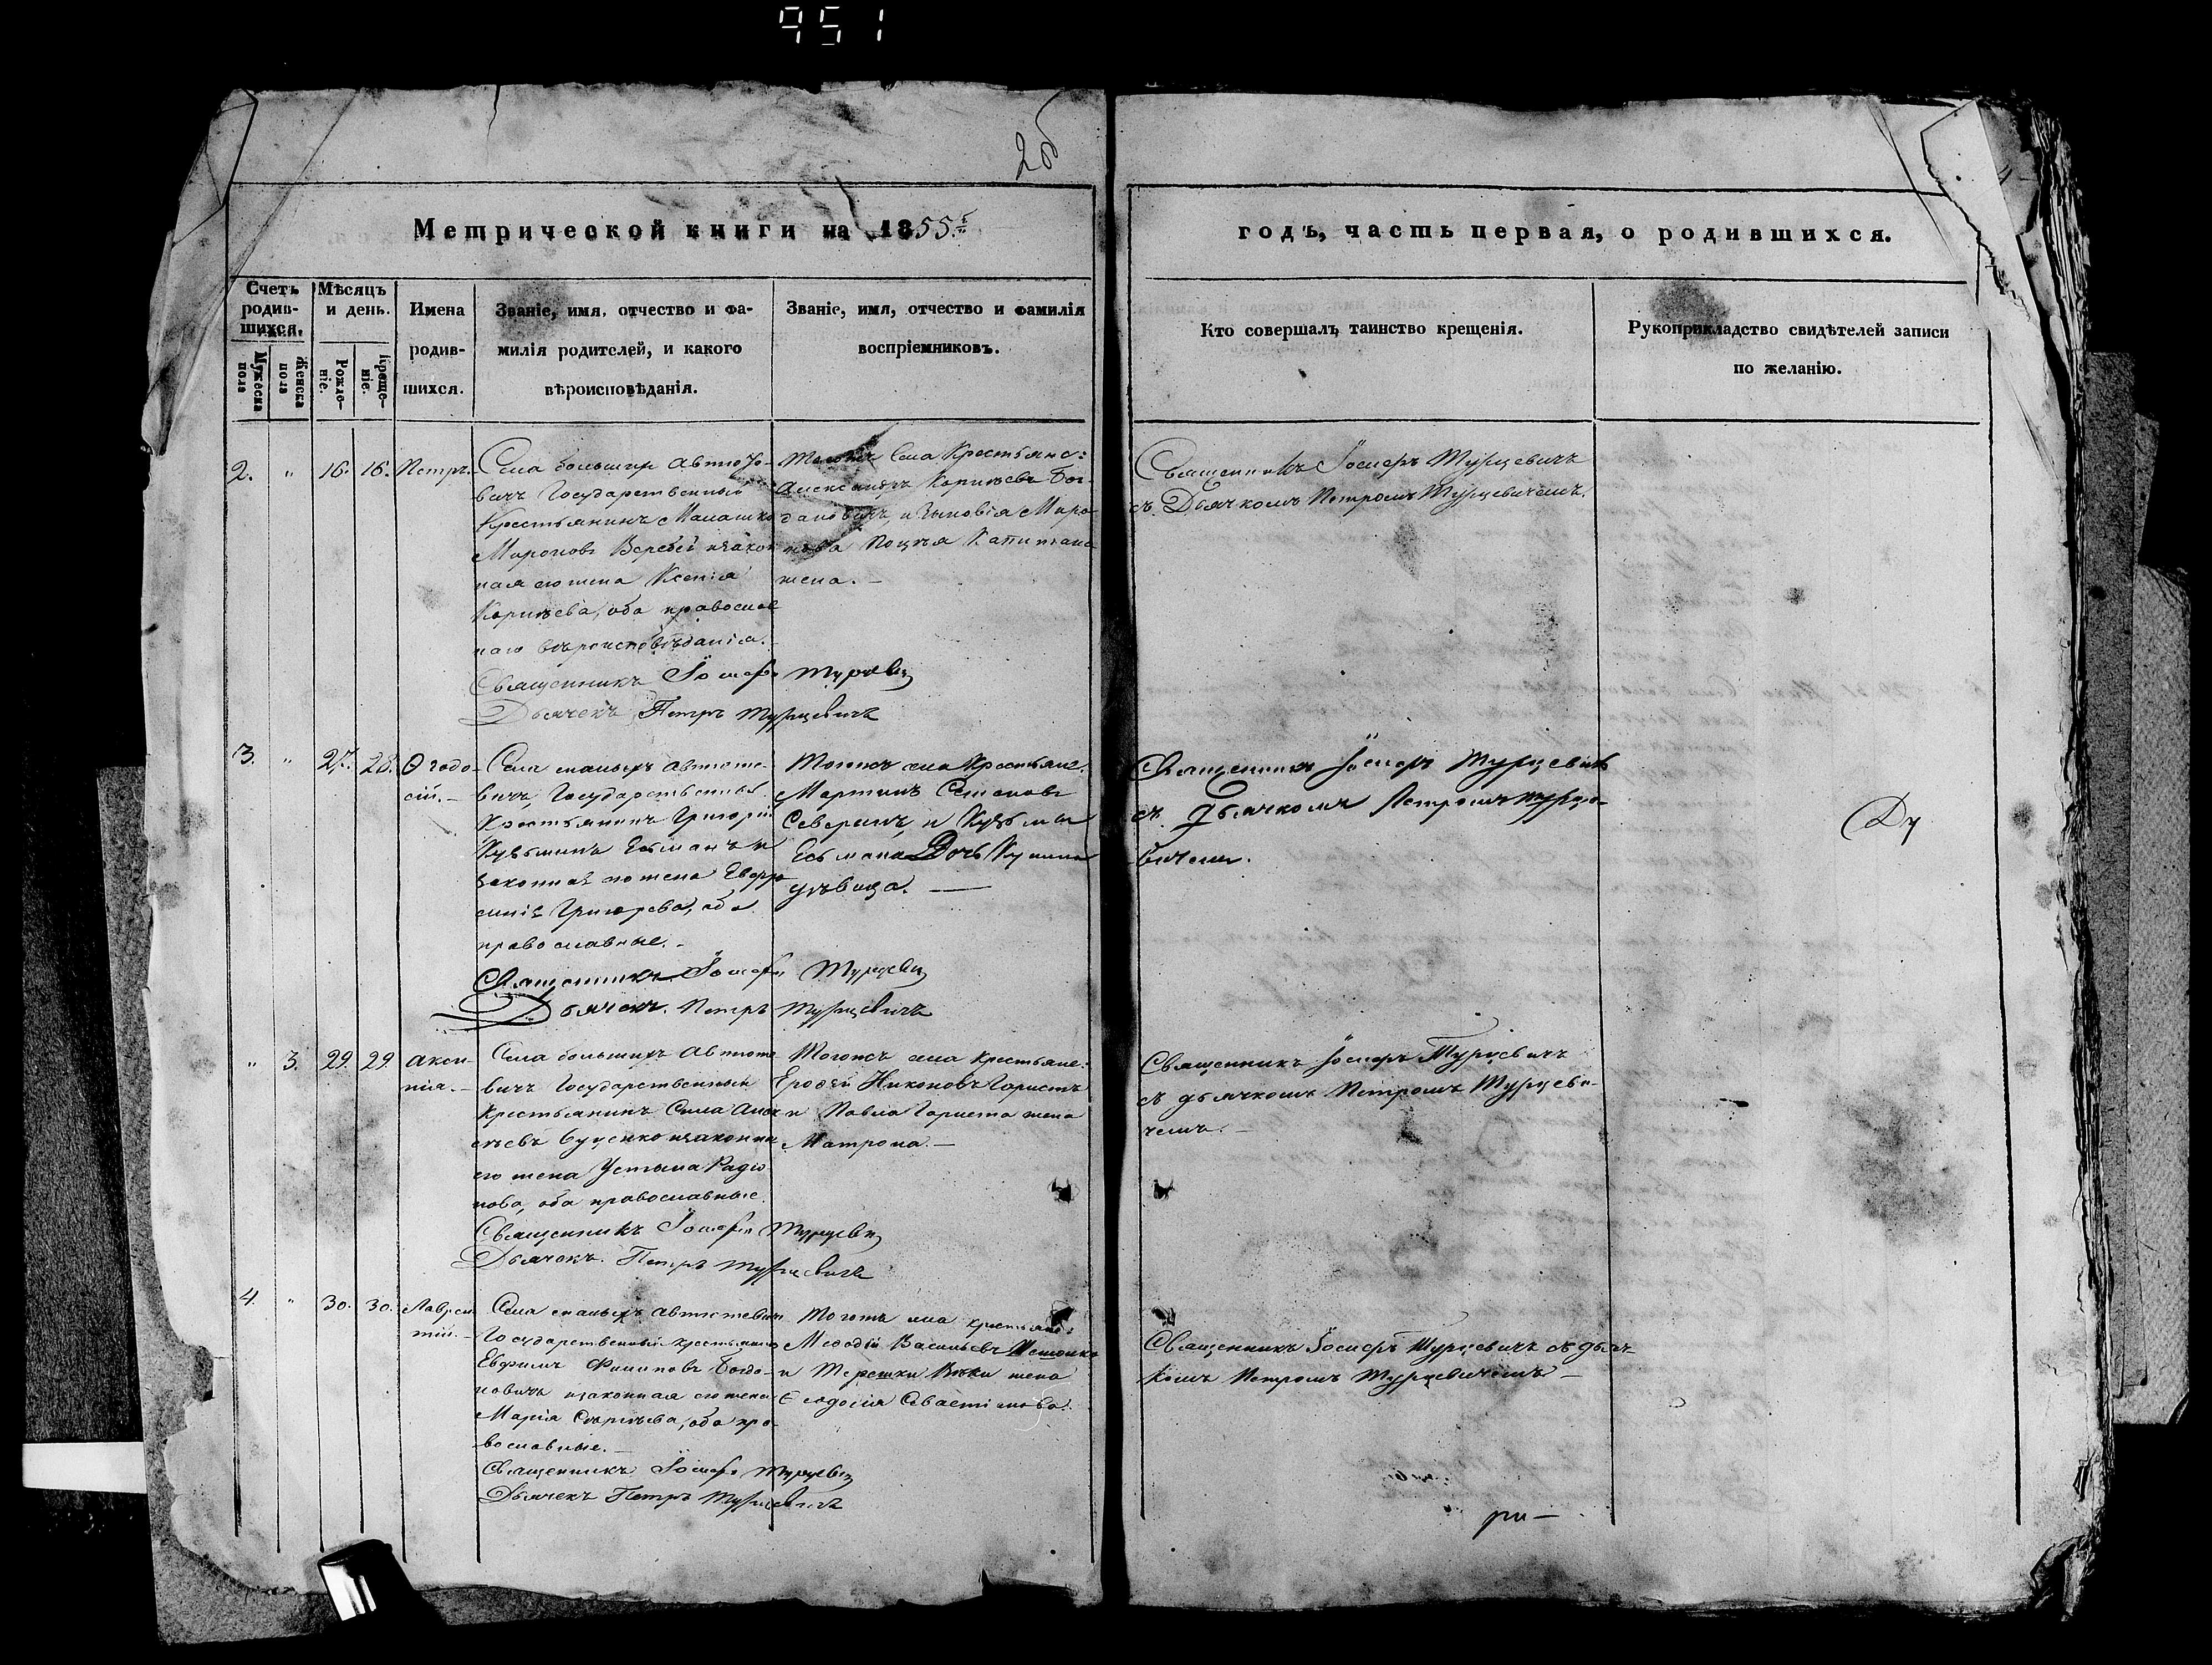 951
2об
Метрической книги на 1855й
годъ, часть первая, о родившихся.
Счетъ родив-шихся.
Мужеска пола
Женска пола
Мѣсяцъ и день.
Рожде-ніе.
Креще-ніе.
Имена
родив-
шихся.
Званіе, имя, отчество и фа-
милія родителей, и какого
вѣроисповѣданія.
Званіе, имя, отчество и фамилія
воспріемниковъ.
Кто совершалъ таинство крещенія.
Рукоприкладство свидѣтелей записи
по желанію.
2. " 16. 16. Петръ.
Села большихъ Автю
вичъ Государственный
Крестьянинъ
Мироновъ Веребей изакон
ная его жена Ксенія
Корнѣева, оба православ
наго вѣроисповѣданія.
Священникъ Іосифъ Турцевич
Дьячекъ Петръ Турцевичъ
села Крестьяне:
Александръ Корнѣевъ Бог-
дановичъ, и Миро
нова Капитана
жена. –
Священникъ Іосифъ Турцевичъ
съ Дьячкомъ Петромъ Турцевичемъ.
3. " 27. 28. Ѳеодо-
сій. –
Села малыхъ Автюте-
вичъ Государственный
Крестьянинъ Григорій
Кузьминъ Есьманъ и
законная его жена Евфро
синія Григорьева, оба
православные. –
Священникъ Іосифъ Турцевич
Дьячекъ. Петръ Турцевичъ
Тогожъ села Крестьяне.
Мартинъ Семеновъ
Северинъ, и Кузьмы
Есьмана Дочь
дѣвица. –
Священникъ Іосифъ Турцевичъ
съ дьячкомъ Петромъ Турце-
вичемъ.
" 3. 29. 29. Акси-
нія. –
Села большихъ Автюте
вичъ Государственный
Крестьянинъ Сила Алек
сѣевъ Буценко изаконная
его жена Устина Радіо
нова, оба православные
Священникъ Іосифъ Турцевич
Дьячекъ. Петръ Турцевичъ
Тогожъ села крестьяне:
Ерофей Никоновъ Гористъ
и Павла Гориста жена
Матрона. –
Священникъ Іосифъ Турцевичъ
съ дьячкомъ Петромъ Турцеви-
чемъ. –
4. " 30. 30. Лаврен
тій. –
Села малыхъ Автютевичъ
Государственный крестьянинъ
Евфимъ Филиповъ Богда-
новичъ изаконная его жена
Марія Сергѣева, оба пра-
вославные. –
Священникъ Іосифъ Турцевич
Дьячекъ Петръ Турцевичъ
Тогожъ села крестьяне:
Меѳодій Васильевъ
и Терешки жена
Севастіянова.
Священникъ Іосифъ Турцевичъ съ дьяч-
комъ Петромъ Турцевичемъ –
ри –